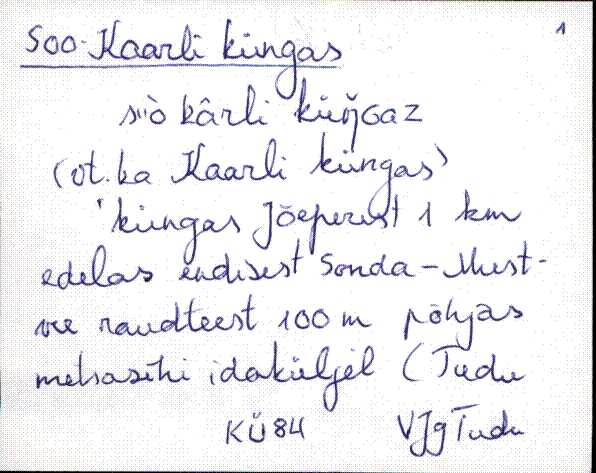 Soo-Kaarli küngas 1
s͔ùò kârli küŋ̆Gaz
(vt. ka Kaarli küngas)
'küngas Jõeperest 1 km
edelas endisest Sonda-Must-
vee raudteest 100 m põhjas
metsasihi idaküljel (Tudu
KÜ84 VJg Tudu